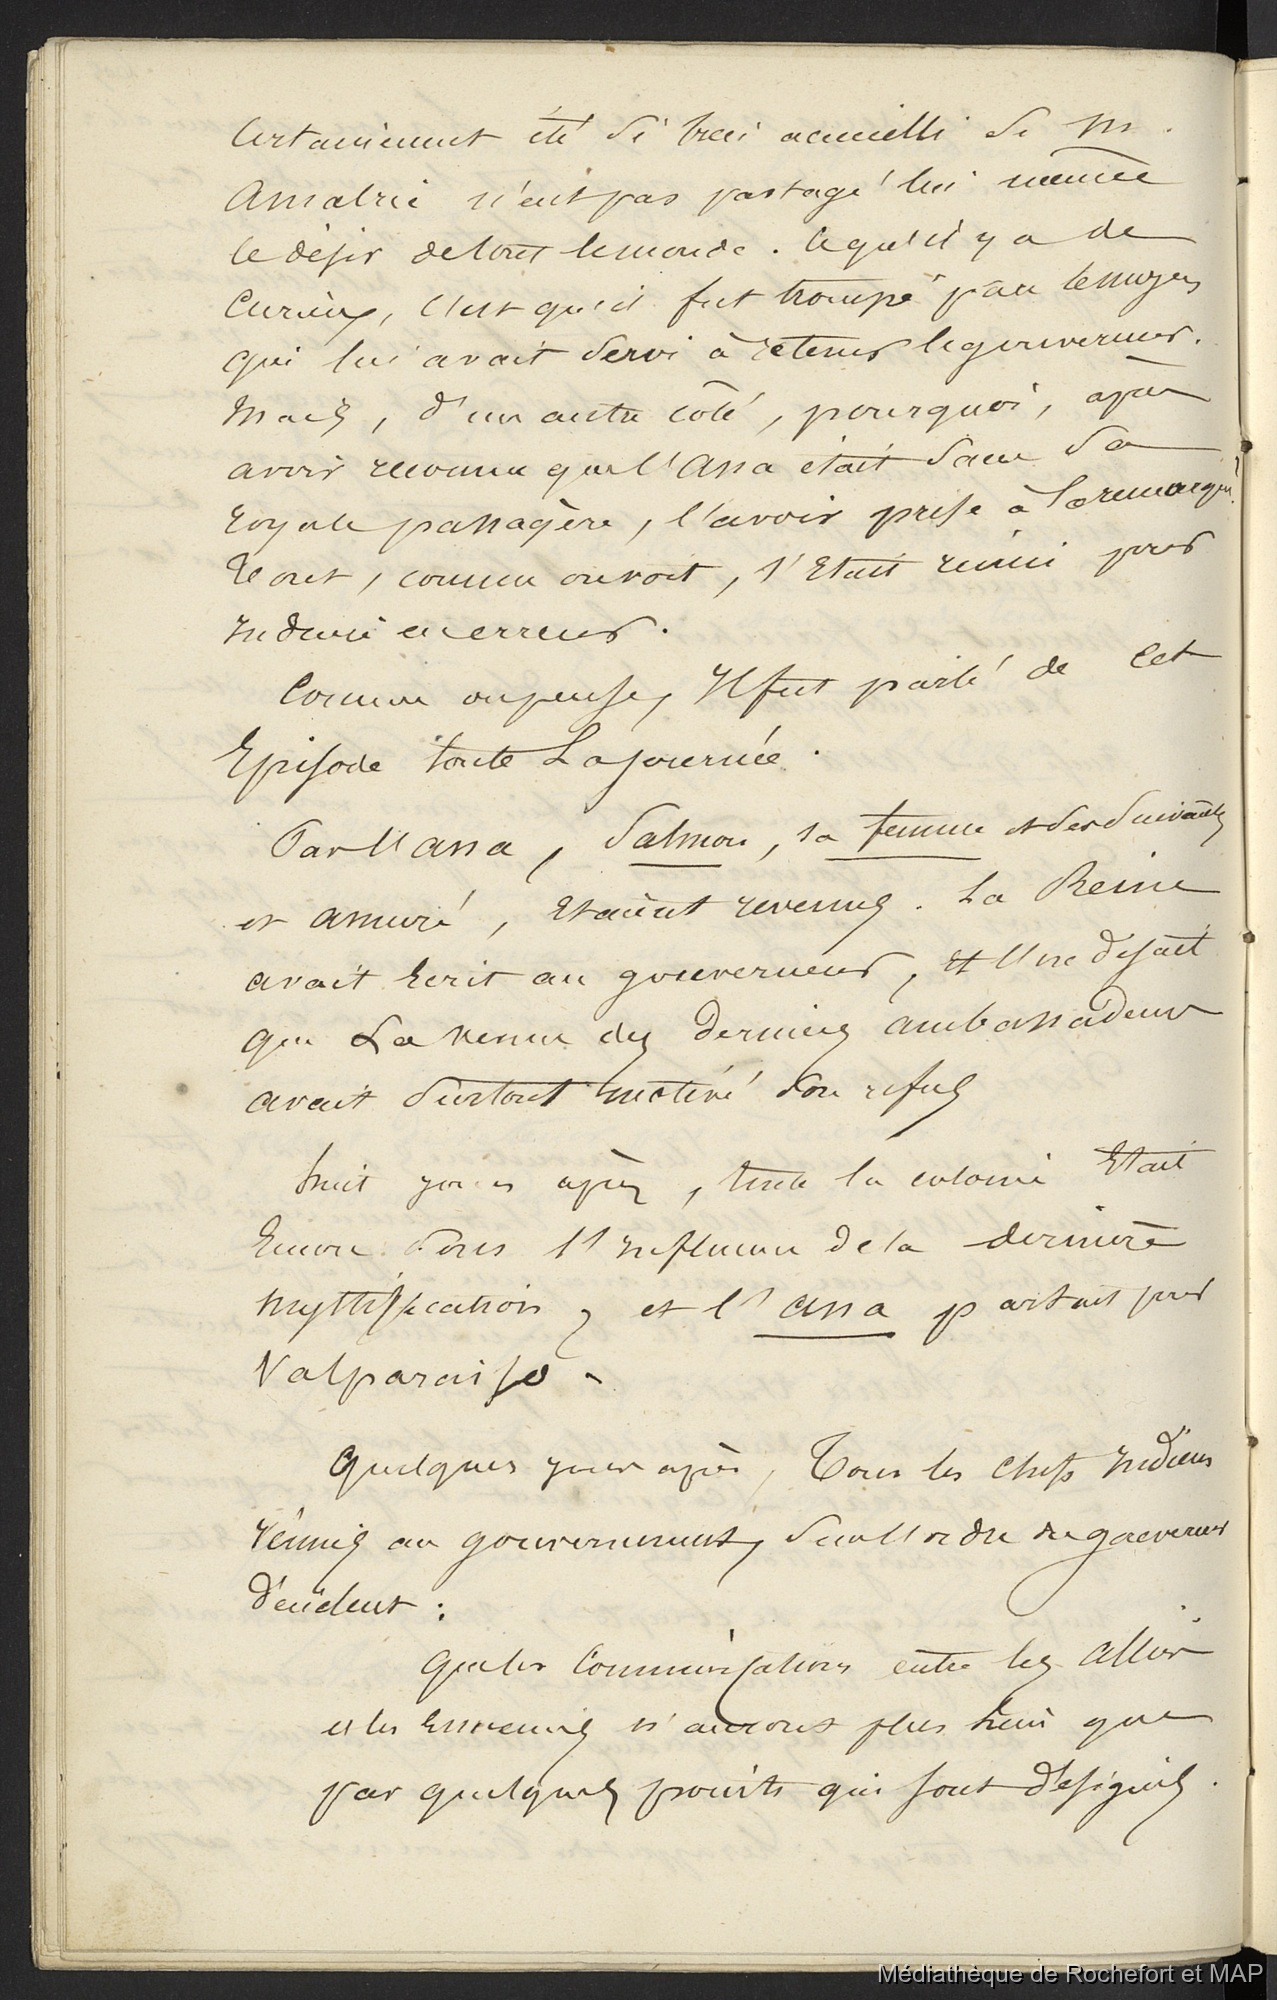 certainement été si bien accueilli si M.
Amalric n'eut pas partagé lui même
le désir de tout le monde. Ce qu'il y a de
curieux, c'est qu'il fut trompé par le moyen
qui lui avait servi à retenir le gouverneur.
Mais, d'un autre côté, pourquoi, après
avoir reconnu que l'Ana était sans sa
royale passagère, l'avoir prise à la remorque?
Tout, comme on voit, s'était réuni pour
induire en erreur.
Comme on pense, Il fut parlé de cet
Episode toute La journée.
Par l'ana, Salmon, sa femme et ses suivants
et , étaient revenus. La Reine
avait écrit au gouverneur, et l'on disait
que La venue des derniers ambassadeurs
avait surtout motivé son refus
huit jours après, toute la colonie était
Encore sous l'influence de la dernière
mystification, et l'ana partait pour
Valparaiso.
Quelques jours après, Tous les chefs indiens
réunis au gouvernement, sur l'ordre du gouverneur
décident :
Que les Communications entre les alliés
et les Ennemis n'auront plus lieu que
par quelques points qui sont désignés.
Médiathèque de Rochefort et MAP